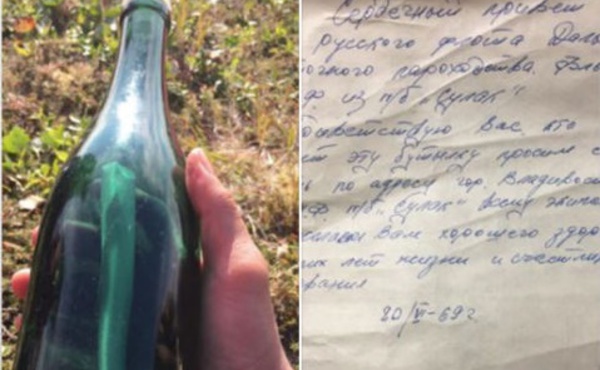 Сердечный привет
русского флота Даль
очного пароходства. Вла
Ф. из п/б „Сулак"
риветствую Вас, кто
ет эту бутылку просим с
ь по адресу гор. Владивос
Ф. п/б „Сулак" всему экипа
желаем Вам хорошего здор
гих лет жизни и счастли
авания
20/VI-69 г.